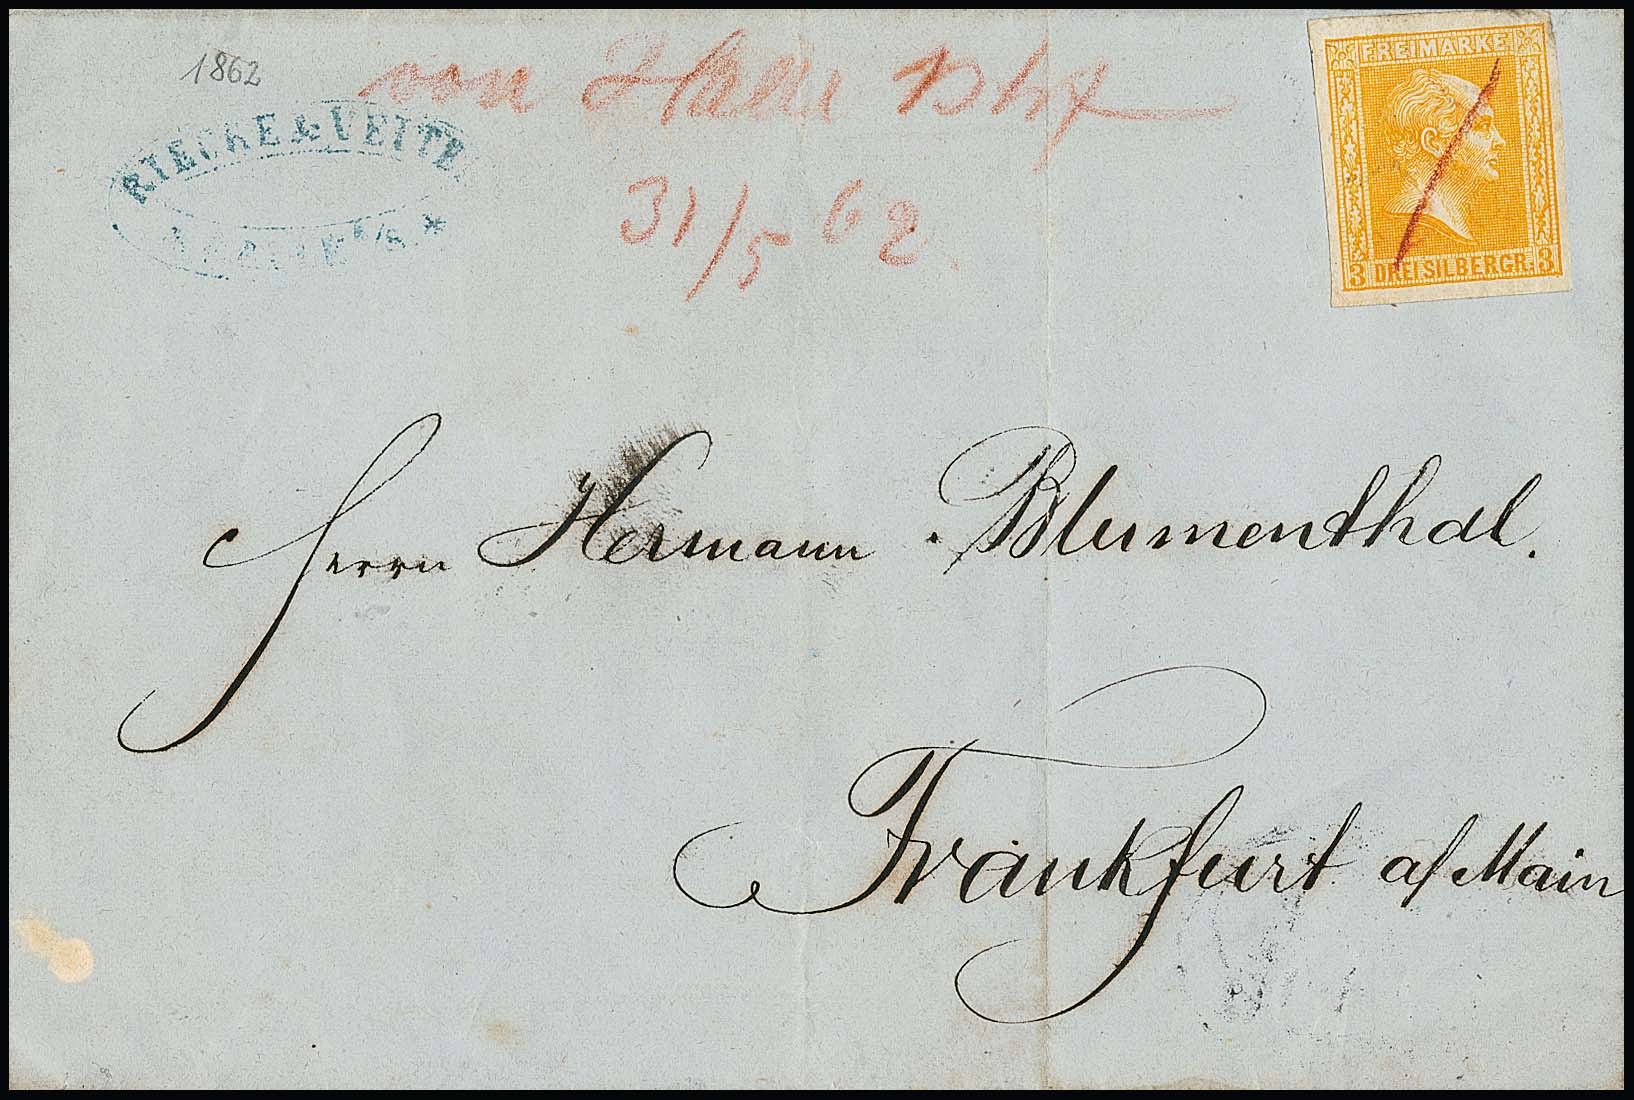 1862
von Halle Bhf
31/5 62
RIECKE & VEITE
a/S. *
FREIMARKE
3 DREI SILBERGR. 3
Herrn Hermann Blumenthal.
Frankfurt a/Main